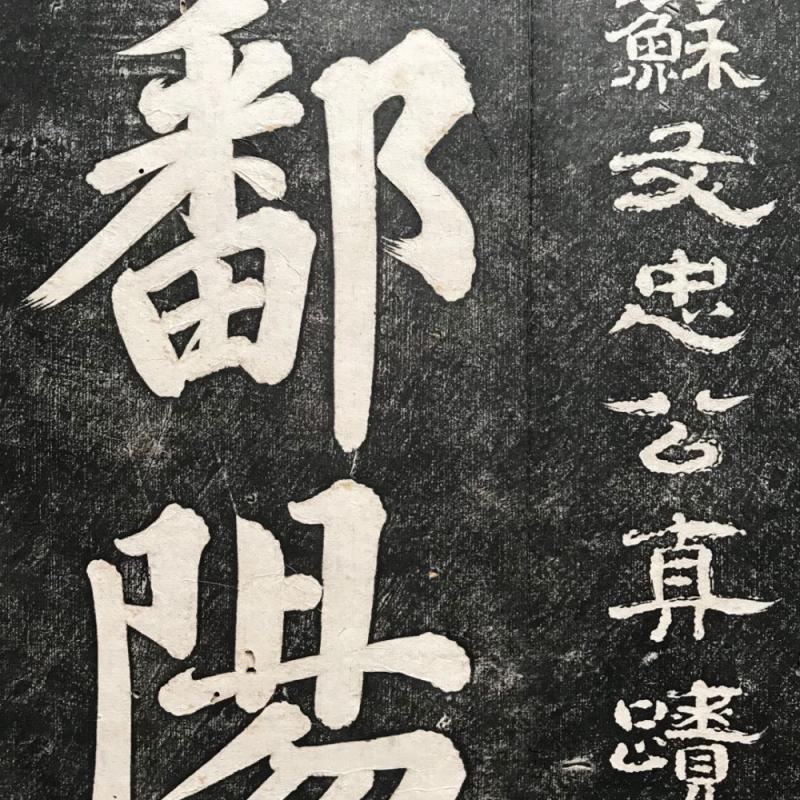 蘇文忠公真蹟
鄱陽